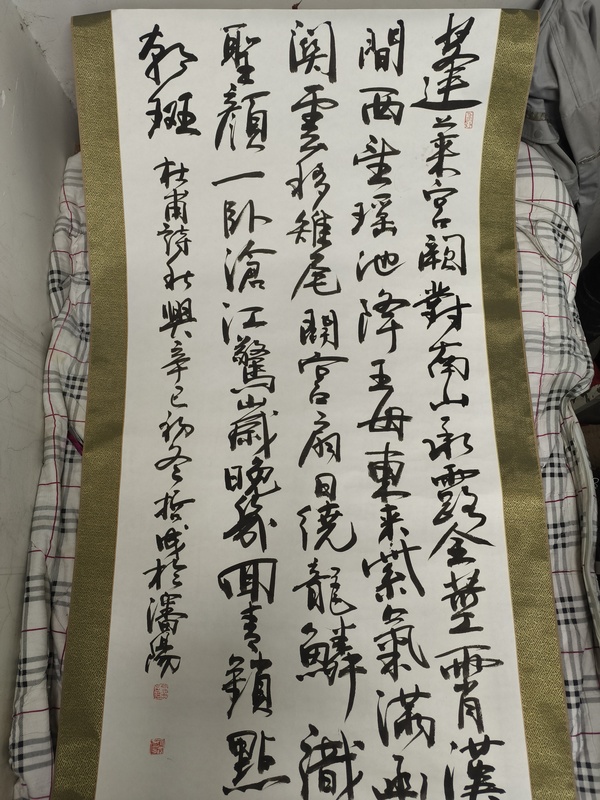 蓬萊宮闕對南山承露金莖霄漢
間西望瑤池降王母東來紫氣滿函
関雲移雉尾開宮扇日繞龍鱗識
聖顏一卧滄江驚歲晚幾回青鎖點
朝班
杜甫詩秋興辛巳初冬於瀋陽